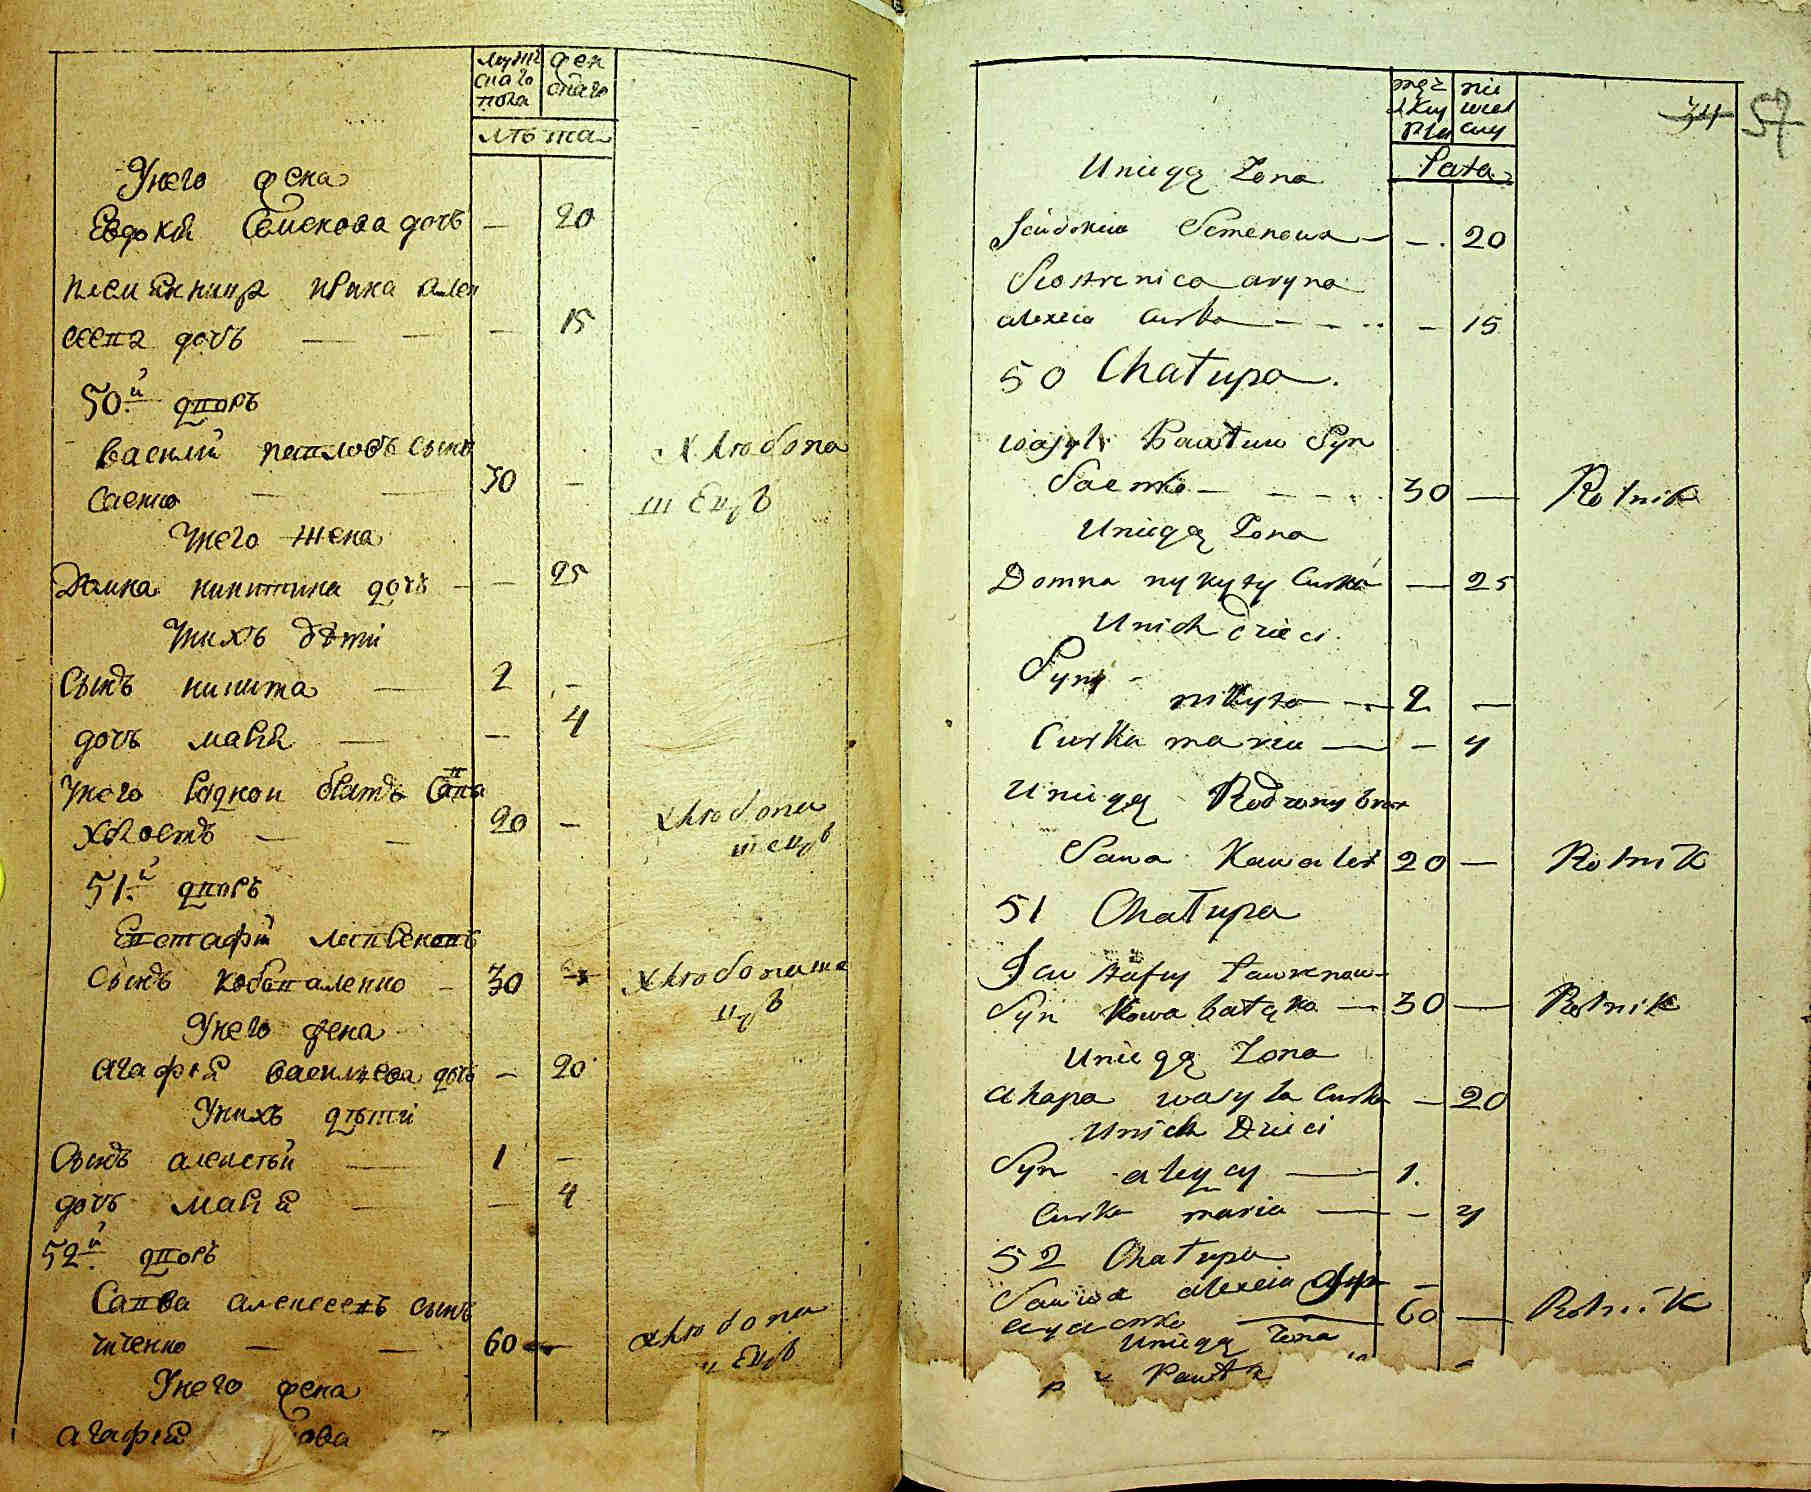 мужескаго пола
женскаго
лѣта
У него жена
Евдокия Семенова дочь — 20
племянница Ирина Алек
сеева дочь — — — 15
50.й дворъ
Василий Павловъ сынъ
Саенко — — 30 —
хлѣбопашецъ
У него жена
Домна Никитина дочь — — 25
У нихъ дѣти
Сынъ Никита — 2 —
дочь Мария — — 4
У него родной братъ Сава
холостъ — — 20 —
хлѣбопашецъ
51.й дворъ
Евстафий Лавреновъ
сынъ Ковбаленко — 30 —
хлѣбопашецъ
У него жена
Агафия Васильева дочь — 20
У нихъ дѣти
Сынъ Алексѣй — 1 —
дочь Мария — — 4
52.й дворъ
Савва Алексеевъ сынъ
60 —
хлѣбопашецъ
У него жена
Агафия ова —
męzkey płci
niewiesciey
Lata
34 57
Uniegą Zona
Jeudokia Semenowa — — 20
Siostrenica aryna
alexeia Curka — — — 15
50 Chałupa.
wasyli Pawłuw Syn
Saenko — — — 30 — Rolnik
Uniegą Zona
Domna nykyty Curka — 25
Unich Dzieci
Syny -
nikyta — 2 —
Curka maria — — 4
Uniegą Rodzony brat
Sawa Kawaler 20 — Rolnik
51 Chałupa
Jewstafiy Lawrenow
Syn Kowbałęko — 30 — Rolnik
Uniegą Zona
ahapa wasyla Curka — 20
Unich Dzieci
Syn alexy — 1.
Curka maria — — 4
52 Chałupa
Sawa alexeia Syn —
60 — Rolnik
Uniegą Zona
Pawła